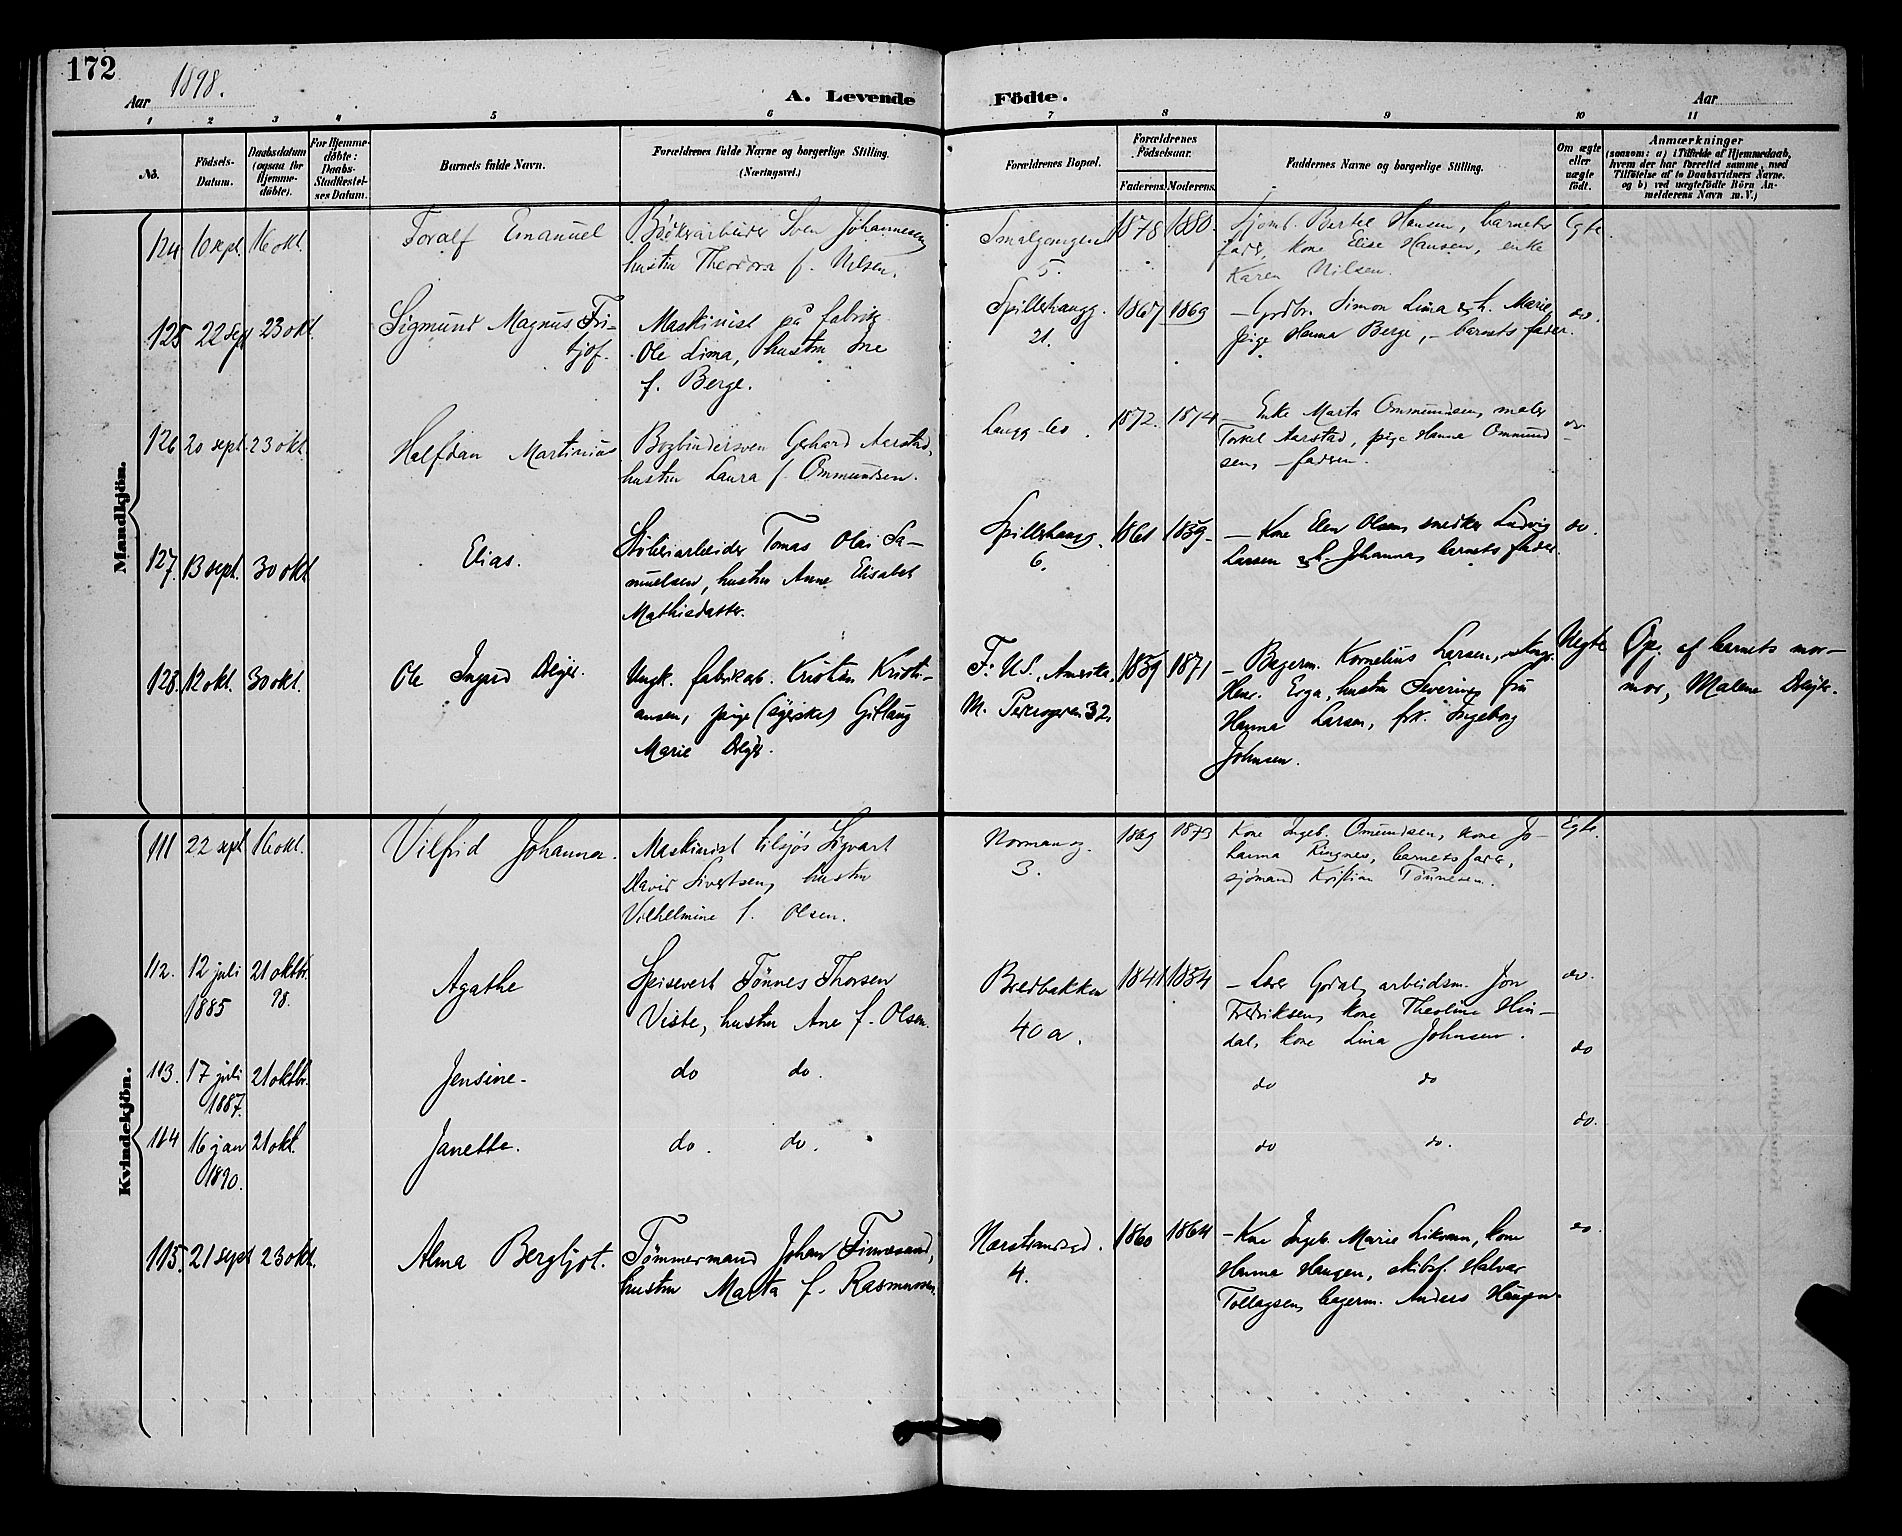 172
Aar 1898.
A. Levende Födte.
Aar
1 2 3 4 5 6 7 8 9 10 11
No.
Födsels-
Datum.
Daabsdatum
(ogsaa for
Hjemme-
döbte).
For Hjemme-
döbte:
Daabs-
Stadfæstel-
ses Datum.
Barnets fulde Navn.
Forældrenes fulde Navne og borgerlige Stilling.
(Næringsvei.)
Forældrenes Bopæl.
Forældrenes
Födselsaar.
Faderens. Moderens.
Faddernes Navne og borgerlige Stilling.
Om ægte
eller
uægte
födt.
Anmærkninger
(saasom: a) i Tilfælde af Hjemmedaab,
hvem der har forrettet samme, med
Tilföielse af to Daabsvidners Navne.
og b) ved uægtefödte Börn An-
melderens Navn m. V.)
Mandkjön.
124 10 sept. 16 okt.
Toralf Emanuel
Sven Johannesen
hustru Theodora f. Nilsen.
Smalgangen
5.
1878 1880.
Sjömd. Bertel Hansen, barnets
fader, kone Elise Hansen, enke
Karen Nilsen.
Egte.
125 22 sept 23 okt.
Sigmund Magnus Fri-
tjof.
Maskinist på fabrik
Ole Lima, hustru Ine
f. Berge.
Spilderhaugg.
21.
1867 1869
- Grdbr. Simon Lima & h. Marie,
pige Hanna Berge, - barnets fader.
do.
126 20 sept. 23 okt.
Halfdan Martinius
Bogbindersven Gerhard Aarstad,
hustru Laura f. Ommundsen.
Langg.
1872. 1874
- Enke Marta Ommundsen, maler
Torkel Aarstad, pige Hanne Ommund
sen, - faderen.
do
127. 13 sept. 30 okt
Elias.
Støberiarbeider Tomas Olai Sa-
muelsen, hustru Anne Elisabet
Mathisdatter.
Spilderhaugg.
6.
1861 1859-
- Kone Elen Olsen, snedker Ludvig
Larsen & h. Johanna, barnets fader.
do.
128. 12 okt. 30 okt.
Ole Ingvd
Ungk. fabrikarb. Kristian Kristi-
ansen, pige Gitlaug
Marie
F: U.S. Amerika,
M. 32.
1859 1871
- Bagerm. Kornelius Larsen,
Henr. Erga, hustru Severine, frü
Hanna Larsen, frk. Ingeborg
Johnsen.
Uegte
Op. af barnets mor-
mor, Malene
Kvindekjön.
111 22 sept 16 okt.
Vilfrid Johanna.
Maskinist tilsjös Sigvart
David Sivertsen, hustru
Vilhelmine f. Olsen.
Normanng.
3.
1869 1873
Kone Ingeb. Omundsen, kone Jo-
hanna Ringnes, barnets fader,
sjömand Kristian Tönnesen.
Egte.
112. 12 juli 21 oktbr.
1885 98.
Agathe
Spisevert Tönnes Thorsen
Viste, hustru Ane f. Olsen.
Bredbakken
40 a.
1841 1854
- Lærer Godal, arbeidsm. Jon
Fredriksen, kone Theoline Hin-
dal, kone Lina Johnsen.
do.
113. 17 juli 21 oktbr.
1887.
Jensine-
do do.
do do
do
114 16 jan 21 okt.
1890.
Janette.
do. do.
do do.
do.
115. 21 sept 23 okt.
Alma Bergljot.
Tömmermand Johan Finnesand,
hustru Marta f. Rasmussen.
Nærstrandsgd.
4.
1860 1864
- Kone Ingeb. Marie Likvam, kone
Hanna Haugen, skibsf. Halvar
Tollagsen, bagerm. Anders Haugen.
do.